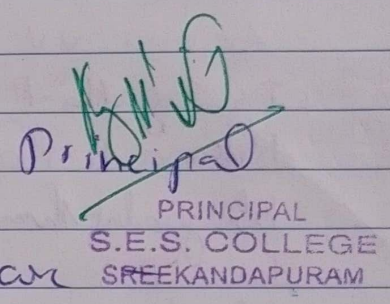 Principal
PRINCIPAL
S.E.S. COLLEGE
SREEKANDAPURAM